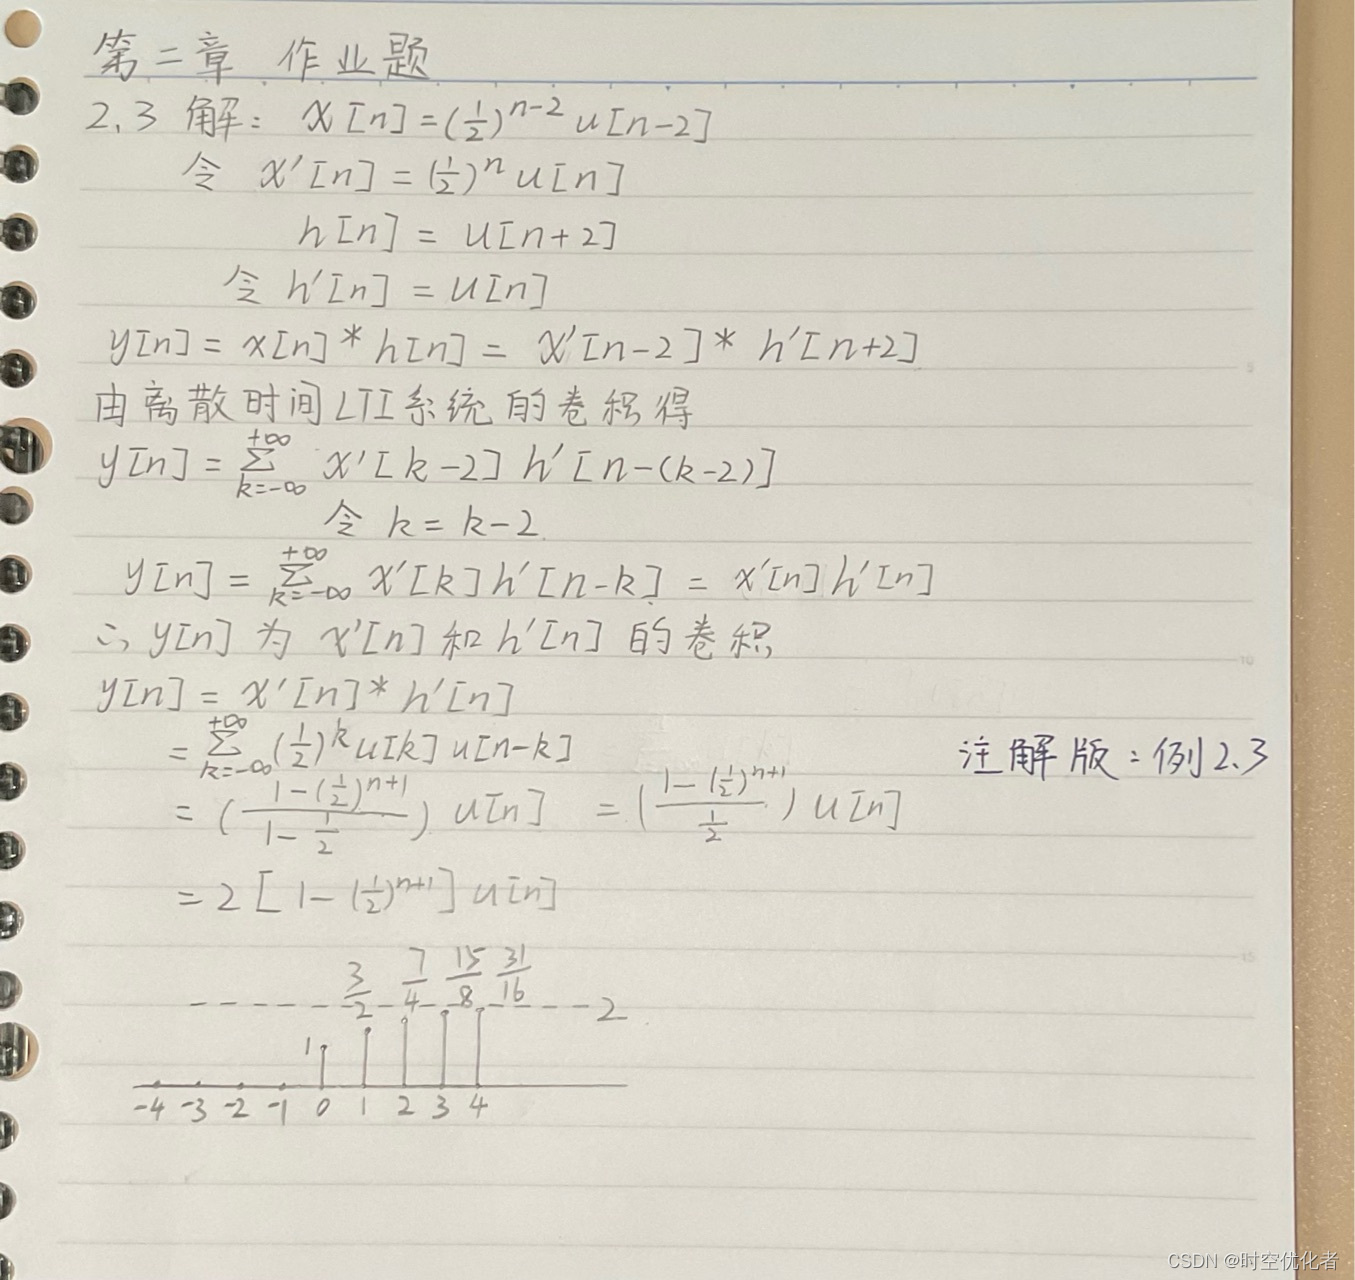 第二章 作业题
2.3 解: x[n]=(1/2)^{n-2} u[n-2]
令 x'[n]=(1/2)^n u[n]
h[n] = u[n+2]
令 h'[n] = u[n]
y[n] = x[n] * h[n] = x'[n-2] * h'[n+2]
由离散时间LTI系统的卷积得
y[n] = Σ_{k=-∞}^{+∞} x'[k-2] h'[n-(k-2)]
令 k = k-2
y[n] = Σ_{k=-∞}^{+∞} x'[k] h'[n-k] = x'[n] h'[n]
∴ y[n] 为 x'[n] 和 h'[n] 的卷积
y[n] = x'[n] * h'[n]
= Σ_{k=-∞}^{+∞} (1/2)^k u[k] u[n-k]
注解版:例2.3
= ( (1-(1/2)^{n+1}) / (1-1/2) ) u[n] = ( (1-(1/2)^{n+1}) / (1/2) ) u[n]
= 2 [ 1-(1/2)^{n+1} ] u[n]
3/2 7/4 15/8 31/16
2
1
-4 -3 -2 -1 0 1 2 3 4
CSDN @时空优化者